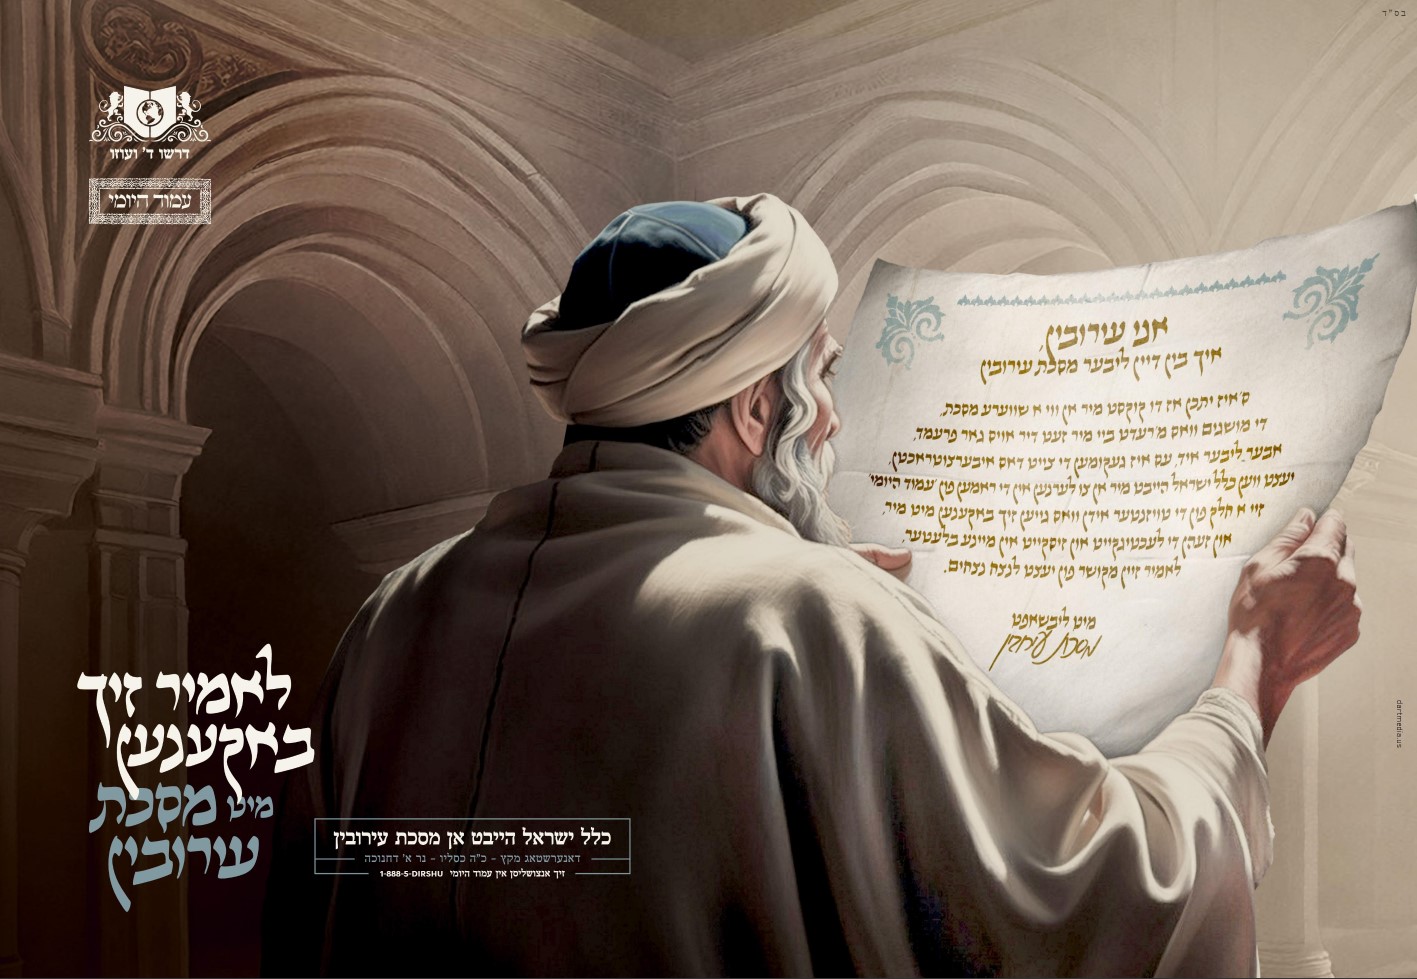 בס"ד
דרשו ד' ועוזו
עמוד היומי
אני עירובין,
איך בין דיין ליבער מסכת עירובין
ס'איז יתכן אז דו קוקסט מיר אן ווי א שווערע מסכת,
די מושגים וואס מ'רעדט ביי מיר זעט דיר אויס גאר פרעמד,
אבער ליבער איד, עס איז געקומען די צייט דאס איבערצוטראכטן,
יעצט ווען כלל ישראל הייבט מיר אן צו לערנען אין די ראמען פון 'עמוד היומי'
זיי א חלק פון די טויזנטער אידן וואס גייען זיך באקענען מיט מיר,
און זעהן די לעכטיגקייט און זיסקייט אין מיינע בלעטער.
לאמיר זיין מקושר פון יעצט לנצח נצחים.
מיט ליבשאפט
מסכת עירובין
לאמיר זיך
באקענען
מיט מסכת
עירובין
כלל ישראל הייבט אן מסכת עירובין
דאנערשטאג מקץ - כ"ה כסליו - נר א' דחנוכה
זיך אנצושליסן אין עמוד היומי 1-888-5-DIRSHU
dartmedia.us